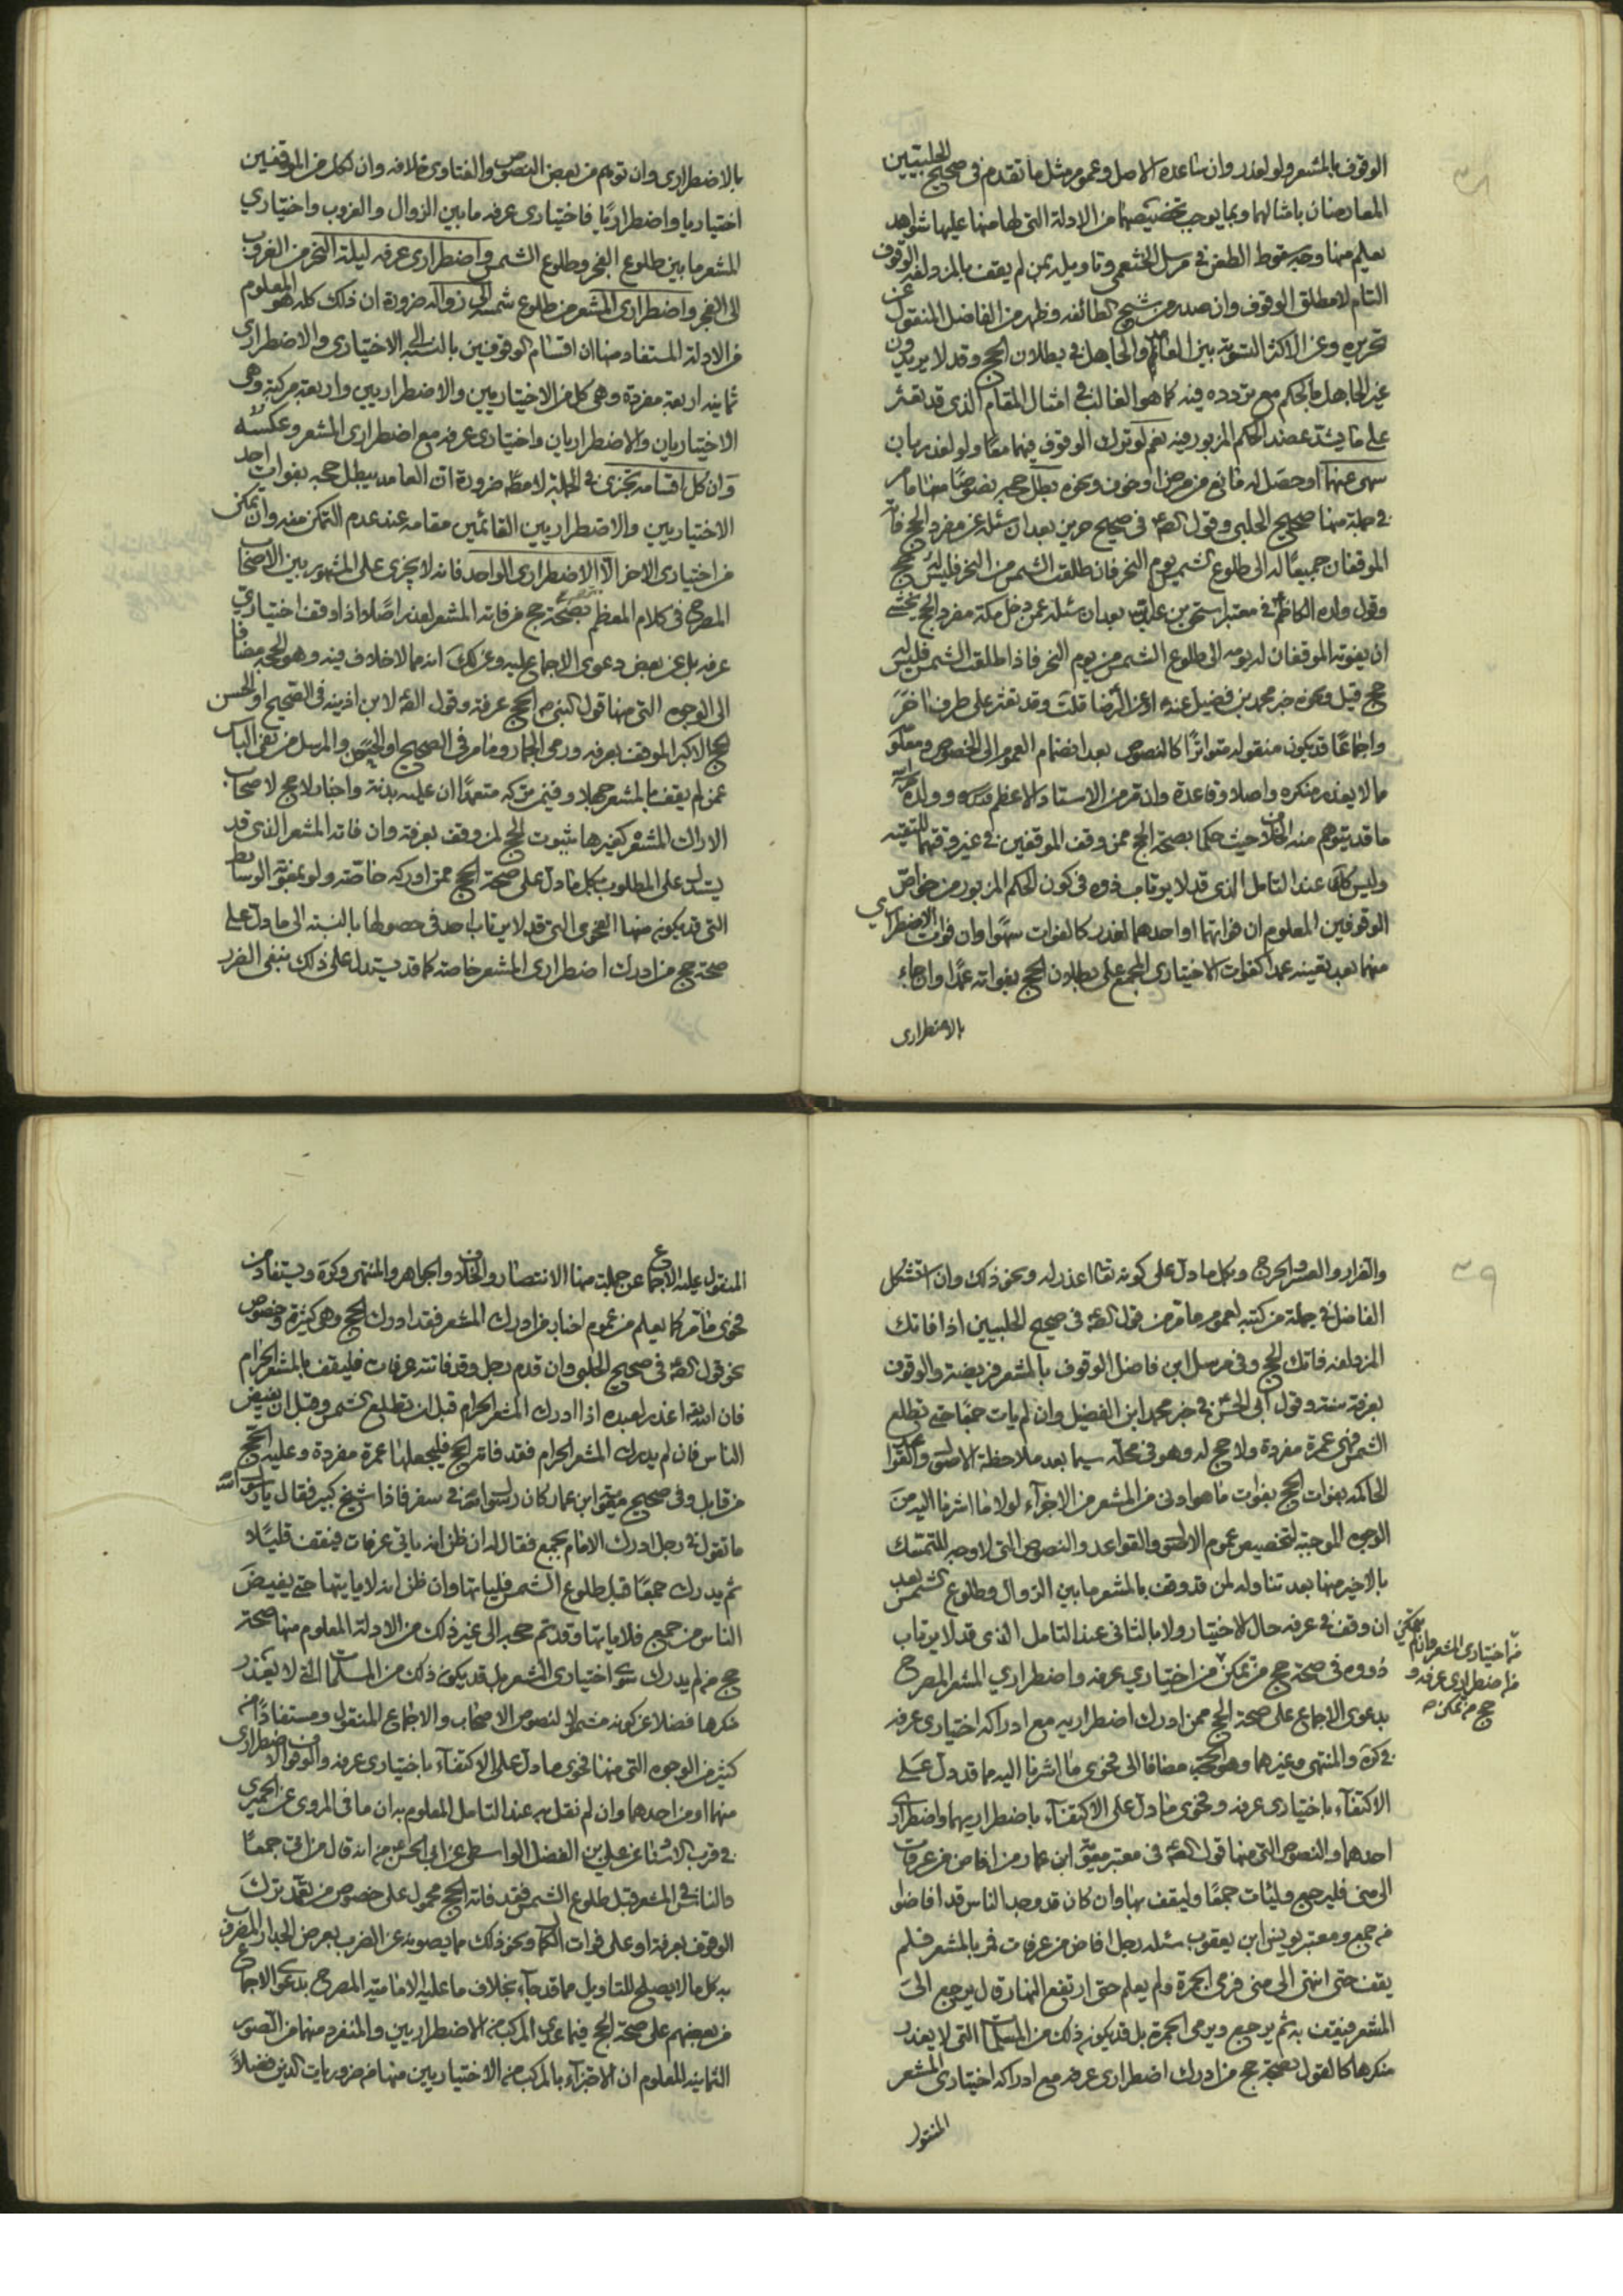 الوقوف بالمشعر ولو لعذر وان ساعده الاصل وعموم مثل ما تقدم فى صحيح الحلبيين
المعارضان بامثالهما وبما يوجب تخصيصهما من الادلة التى لها منها عليها شواهد
يعلم منها وجه سقوط الطعن فى مرسل الخثعمى وتاويله بمن لم يقف بالمزدلفه الوقوف
التام لا مطلق الوقوف وان صدر من شيخ الطائفه وظهر من الفاضل المنقول عن
تحريره وعن الاكثر التسوية بين العالم والجاهل فى بطلان الحج وقد لا يريدون
غير الجاهل بالحكم مع تردده فيه كما هو الغالب فى امثال المقام الذى قد تعثر
على ما يشد عضد الحكم المزبور فيه نعم لو ترك الوقوف فيهما معًا ولو لعذر بان
سهى عنهما او حصل له مانع من مرض او خوف ونحوه بطل حجه نصوصًا منها ما مر
فى جملة منها صحيح الحلبى وقول الصّ فى صحيح حريز بعد ان سئله عن مفرد الحج فاته
الموقفان جميعًا له الى طلوع الشمس يوم النحر فان طلعت الشمس من النحر فليس له حج
وقول ولده الكاظم فى معتبر اسحق بن عبد الله بعد ان سئله عمن دخل مكة مفرد الحج يخشى
ان يفوته الموقفان له يومه الى طلوع الشمس من يوم النحر فاذا طلعت الشمس فليس له
حج قيل ونحوه خبر محمد بن فضيل عنه او عن الرضا قلت وقد تعثر على طرف اخر
واجماعًا قد يكون منقوله متواترًا كالنصوص بعد انضمام العموم الى الخصوص ومعلو
ما لا يعذر منكره واصلا وقاعدة وان مر من الاستاد الاعظم وولده
ما قد يتوهم منه الخلاف حيث حكما بصحة الحج ممن وقف الموقفين فى غير وقتهما للتقيه
وليس كك عند التامل الذى قد لا يرتاب ذوه فى كون الحكم المزبور من خواصّ
الوقوفين المعلوم ان فواتهما او احدهما لعذر كالفوات سهوًا وان فوات الاضطراري
منهما بعد تعينه عمدا كفوات الاختيارى المجمع على بطلان الحج بفواته عمدًا وان جاء
بالاضطرارى
بالاضطرارى وان توهم من بعض النصوص والفتاوى خلافه وان لكل من الموقفين
اختياريا واضطراريًا فاختيارى عرفه ما بين الزوال والغروب واختياري
المشعر ما بين طلوع الفجر وطلوع الشمس واضطرارى عرفه ليلة النحر من الغروب
الى الفجر واضطرارى المشعر من طلوع شمسه الى زواله ضرورة ان ذلك كله هو المعلوم
من الادلة المستفاد منها ان اقسام الوقوفين بالنسبه الى الاختيارى والاضطرارى
ثمانيه اربعة مفردة وهى كل من الاختياريين والاضطراريين واربعة مركبة وهى
الاختياريان والاضطراريان واختيارى عرفه مع اضطرارى المشعر وعكسه
وان كل اقسامه تجزى فى الجملة لا مطلقًا ضرورة ان العامد يبطل حجه بفوات احد
الاختياريين والاضطراريين القائمين مقامه عند عدم التمكن منه وان تمكن
من اختيارى الاخر الّا الاضطرارى الواحد فانه لا يجزى على المشهور بين الاصحاب
المصرح فى كلام المعظم بصحة حج من فاته المشعر لعذر اصلا اذا وقف اختيارى
عرفه بل عن بعض دعوى الاجماع عليه وعن لك انه مما لا خلاف فيه وهو الحجه مضافا
الى الوجوه التى منها قول النبى ص الحج عرفة وقول الصّ لابن اذينه فى الصحيح او الحسن
الحج الاكبر الموقف بعرفه ورمى الجمار وما مر فى الصحيح او الحسن والمرسل من نفى الباس
عمن لم يقف بالمشعر جهلا وفيمن تركه متعمدًا ان عليه بدنة واخبار لا حج لاصحاب
الاراك المشعر كغيرها بثبوت الحج لمن وقف بعرفة وان فاته المشعر الذى قد
يستدل على المطلوب بكل ما دل على صحة الحج ممن ادركه خاصّة ولو بمعونة الوسائط
التى قد يكون منها الفحوى التى قد لا يرتاب احد فى حصولها بالنسبه الى ما دل على
صحة حج من ادرك اضطرارى المشعر خاصة كما قد يستدل على ذلك بنفى الضرر
والضرار والعسر والحرج وبكل ما دل على كونه تعالى اعذر له ونحو ذلك وان استشكل
الفاضل فى جملة من كتبه لعموم ما مر من قول الصّ فى صحيح الحلبيين اذا فاتك
المزدلفه فاتك الحج وفى مرسل ابن فاضل الوقوف بالمشعر فريضة والوقوف
بعرفة سنة وقول ابى الحسن فى خبر محمد ابن الفضيل وان لم يات جمعًا حتى تطلع
الشمس فهى عمرة مفردة ولا حج له وهو فى محله سيما بعد ملاحظة الاصل والقواعد
الحاكمه بفوات الحج بفوات ما هو ادنى من المشعر من الاجزآء لولا ما اشرنا اليه من
الوجوه الموجبة لتخصيص عموم الاصل والقواعد والنصوص التى لا وجه للتمسك
بالاخير منها بعد تناوله لمن قد وقف بالمشعر ما بين الزوال وطلوع الشمس بعد
ان وقف فى عرفه حال الاختيار ولا بالثانى عند التامل الذى قد لا يرتاب
ذووه فى صحة حج من تمكن من اختياري عرفه واضطراري المشعر المصرح
بدعوى الاجماع على صحة الحج ممن ادرك اضطراريه مع ادراكه اختيارى عرفه
فى كرة والمنتهى وغيرهما وهو الحجة مضافا الى فحوى ما اشرنا اليه مما قد دل على
الاكتفآء باختيارى عرفه وفحوى ما دل على الاكتفآء باضطراريهما واضطرارى
احدهما والنصوص التى منها قول الصّ فى معتبر معوية ابن عمار من افاض من عرفات
الى منى فليرجع وليات جمعًا وليقف بها وان كان قد وجد الناس قد افاضوا
من جمع ومعتبر يونس ابن يعقوب سئله رجل افاض من عرفات فمر بالمشعر فلم
يقف حتى انتهى الى منى فرمى الجمرة ولم يعلم حتى ارتفع النهار قال يرجع الى
المشعر فيقف به ثم يرجع ويرمى الجمرة بل قد يكون ذلك من المسلمات التى لا يعذر
منكرها كالقول بصحة حج من ادرك اضطرارى عرفه مع ادراكه اختيارى المشعر
من اختيارى المشعر
من اضطرارى عرفه و
حج من تمكن
المنقول
المنقول عليه الاجماع عن جملة منها الانتصار والخلاف والجواهر والمنتهى وكرة ويستفاد من
فحوى ما مر كما يعلم من عموم اخبار من ادرك المشعر فقد ادرك الحج وهى كثيرة وخصوص
نحو قول الصّ فى صحيح الحلبى وان قدم رجل وقد فاتته عرفات فليقف بالمشعر الحرام
فان الله تعالى اعذر لعبده اذا ادرك المشعر الحرام قبل ان تطلع الشمس وقبل ان يفيض
الناس فان لم يدرك المشعر الحرام فقد فاته الحج فليجعلها عمرة مفردة وعليه الحج
من قابل وفى صحيح معوية ابن عمار كان رسول الله فى سفر فاذا شيخ كبير فقال يا رسول الله
ما تقول فى رجل ادرك الامام بجمع فقال له ان ظن انه ياتى عرفات فيقف قليلًا
ثم يدرك جمعًا قبل طلوع الشمس فلياتها وان ظن انه لا ياتيها حتى يفيض
الناس من جمع فلا ياتها وقد تم حجه الى غير ذلك من الادلة المعلوم منها صحة
حج من لم يدرك سوى اختيارى المشعر بل قد يكون ذلك من المسلمات التى لا يعذر
منكرها فضلا عن كونه مشمولا لنصوص الاصحاب والاجماع المنقول ومستفادًا من
كثير من الوجوه التى منها فحوى ما دل على الاكتفآء باختيارى عرفه والوقوف الاضطرارى
منهما او من احدهما وان لم نقل به عند التامل المعلوم به ان ما فى المروى عن الحميرى
فى قرب الاسناد عن على بن الفضل الواسطى عن ابى الحسن من انه قال من اتى جمعًا
والناس فى المشعر قبل طلوع الشمس فقد فاته الحج محمول على خصوص من تعمد ترك
الوقوف بعرفة او على فوات الكمال ونحو ذلك مما يصونه عن الضرب بعرض الجدار المضروب
به كل ما لا يصلح للتاويل مما قد جآء بخلاف ما عليه الامامية المصرح بدعوى الاجماع
من بعضهم على صحة الحج فيما عدى المركب من الاضطراريين والمنفرد منهما من الصور
الثمانيه المعلوم ان الاجزآء بالمركب من الاختياريين منها من ضروريات الدين فضلًا